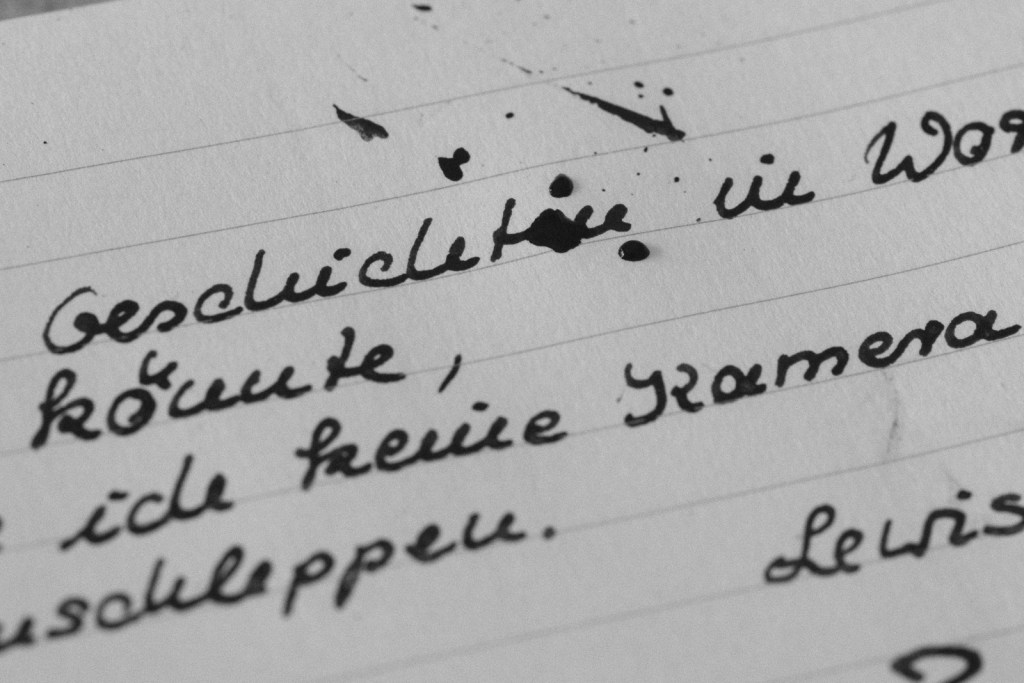 Geschichten in Wor
könnte,
ich keine Kamera
uschleppen.
Lewis